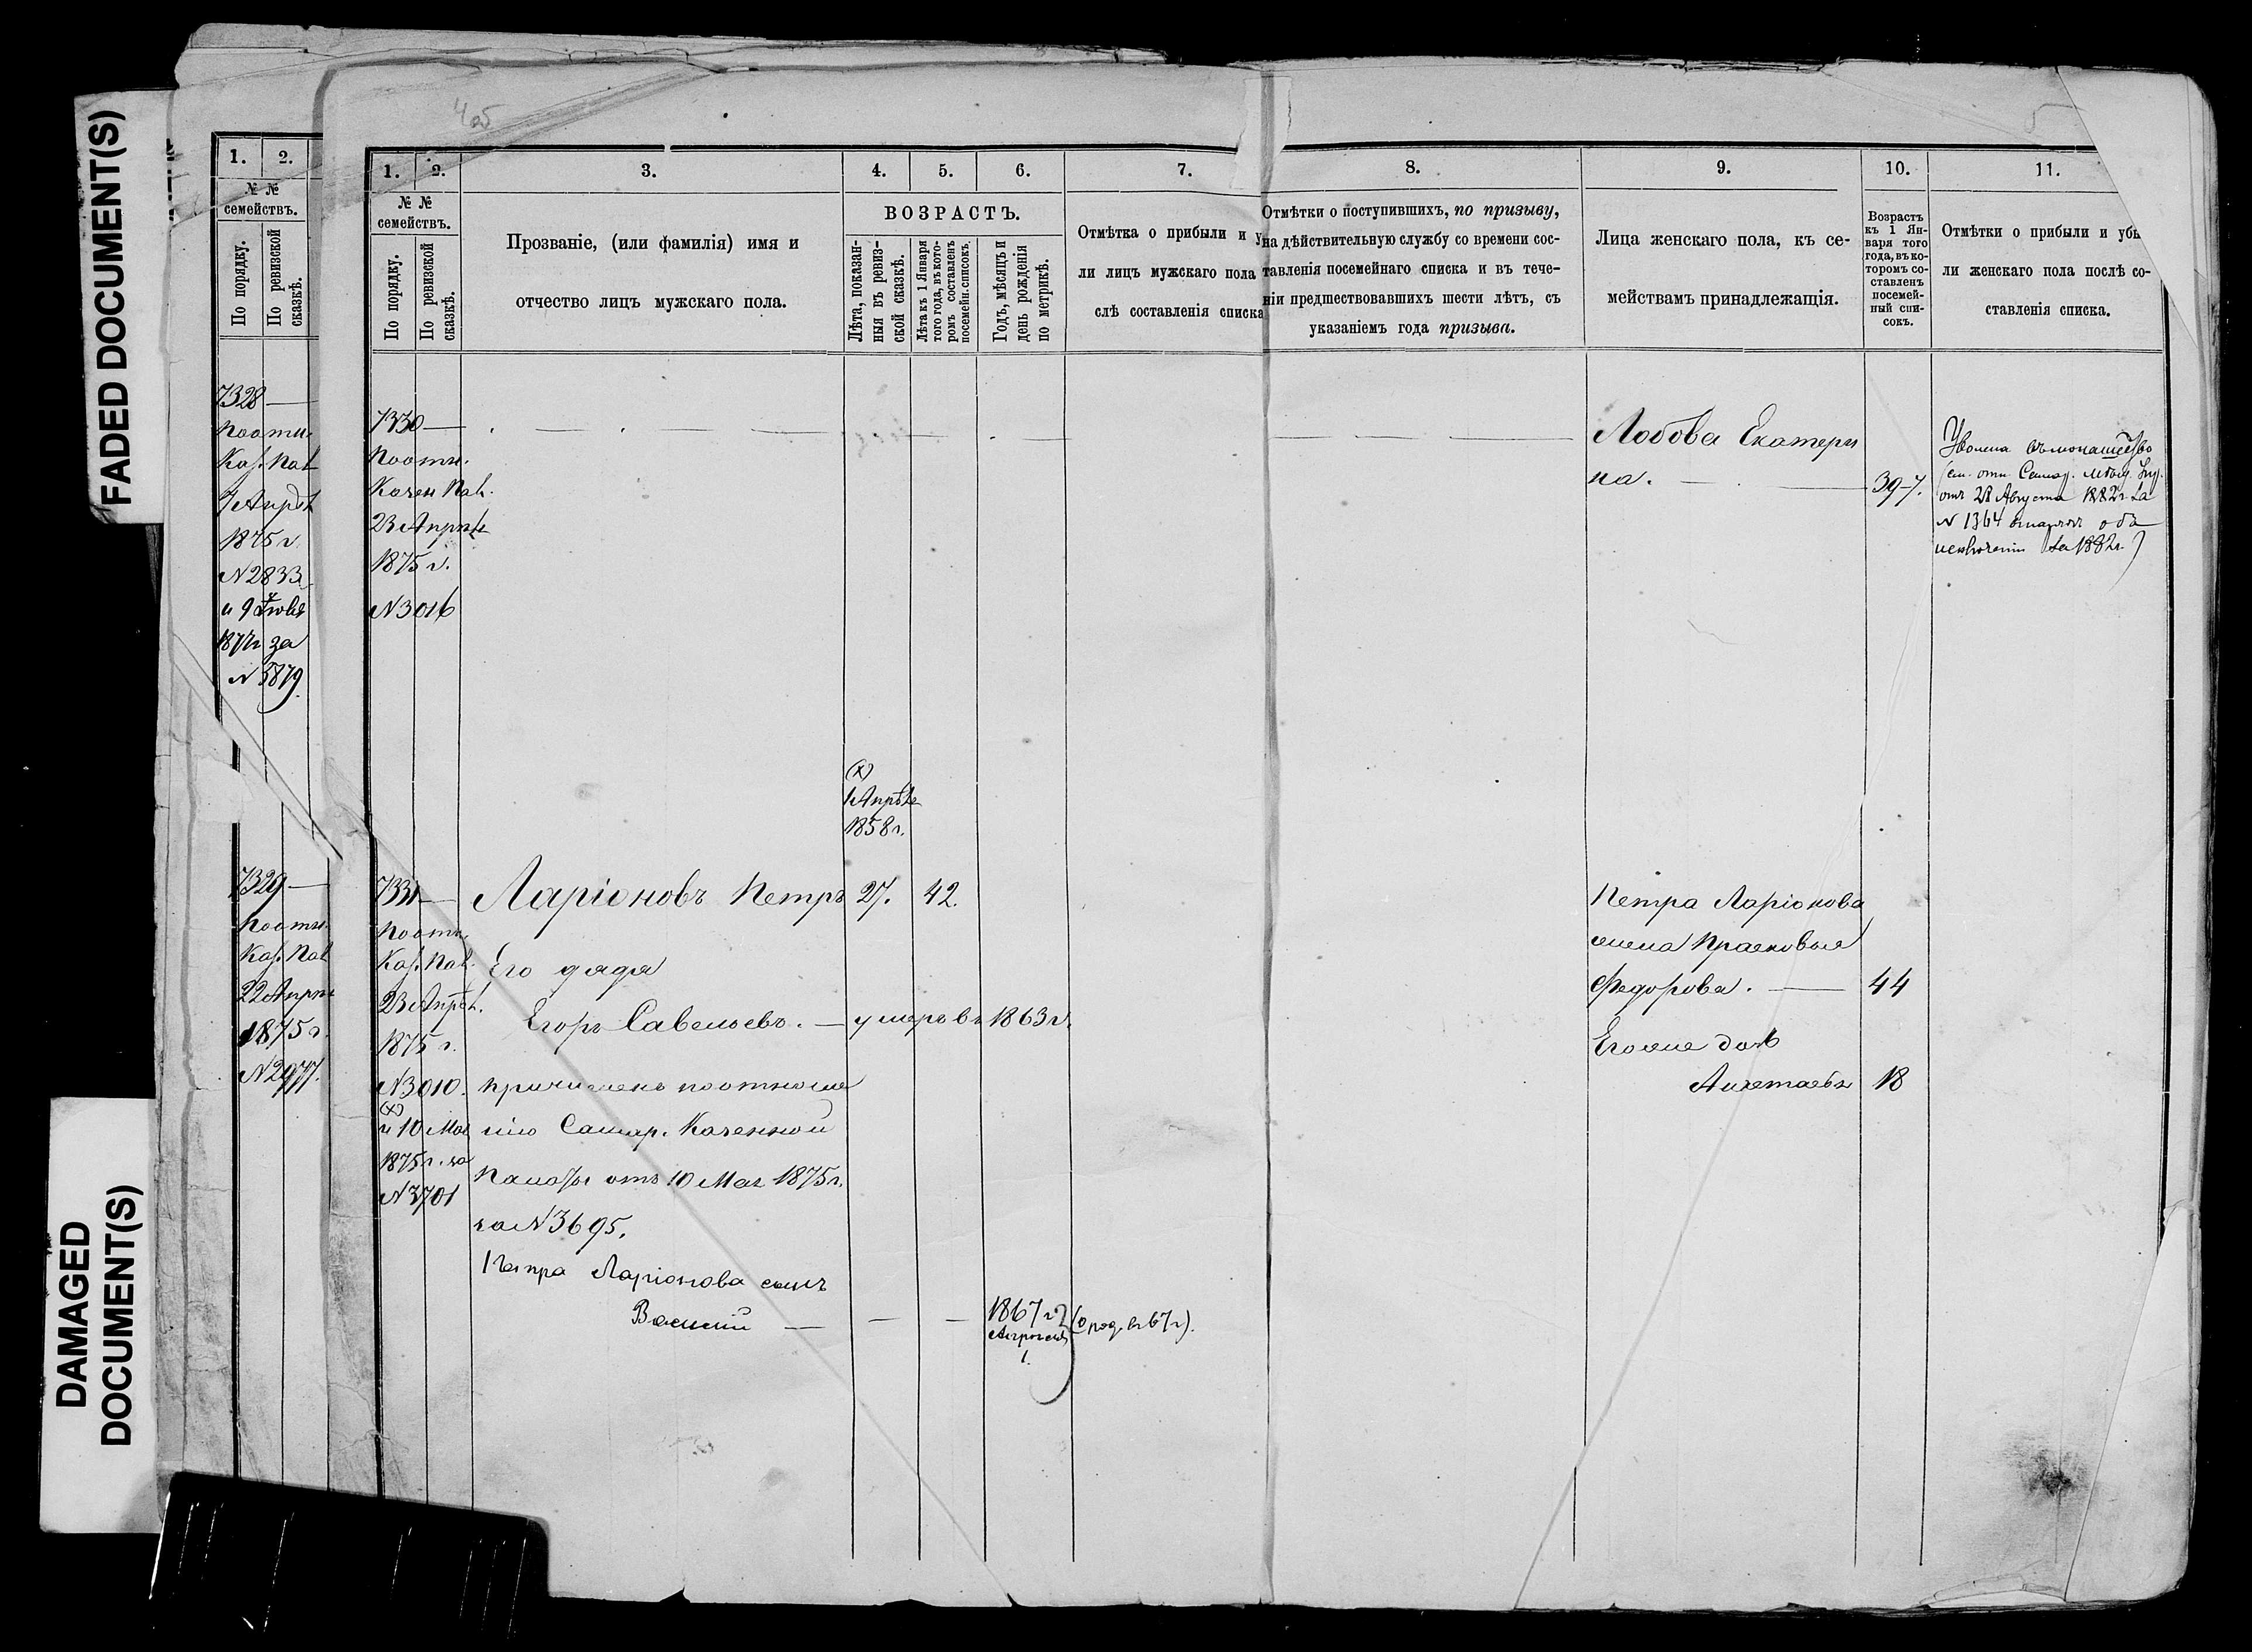 FADED DOCUMENT(S)
DAMAGED
DOCUMENT(S)
4об
5
1. 2.
№ №
семействъ.
По порядку.
По ревизской
сказкѣ.
7328 —
По отн.
Каз. Пал
7 Апрѣл
1875 г.
N 2833
и 9
1877 г за
N 5879.
7329 —
По отн.
Каз. Пал
22 Апрѣл
1875 г.
N 2977.
1. 2. 3. 4. 5. 6. 7. 8. 9. 10. 11.
№ №
семействъ.
По порядку.
По ревизской
сказкѣ.
Прозваніе, (или фамилія) имя и
отчество лицъ мужскаго пола.
ВОЗРАСТЪ.
Лѣта, показан-
ныя въ ревиз-
ской сказкѣ.
Лѣта къ 1 Января
того года, въ кото-
ромъ составленъ
посемейн. списокъ.
Годъ, мѣсяцъ и
день рожденія
по метрикѣ.
Отмѣтка о прибыли и у
ли лицъ мужскаго пола
слѣ составленія списка
Отмѣтки о поступившихъ, по призыву,
на дѣйствительную службу со времени сос-
тавленія посемейнаго списка и въ тече-
ніи предшествовавшихъ шести лѣтъ, съ
указаніемъ года призыва.
Лица женскаго пола, къ се-
мействамъ принадлежащія.
Возрастъ
къ 1 Ян-
варя того
года, въ ко-
торомъ со-
ставленъ
посемей-
ный спи-
сокъ.
Отмѣтки о прибыли и убы
ли женскаго пола послѣ со-
ставленія списка.
7330 —
По отн.
Казен Пал.
23 Апрѣл
1875 г.
N 3016
Лобова Екатери
на. — 39-7.
Уволена въ монашество
(см. отн.
отъ 21 Августа 1882 г. за
N 1364 объ
исключеніи за 1882 г.)
(х)
1 Апрѣл
1858 г.
7331 — Ларіоновъ Петръ 27. 42.
По отн.
Каз. Пал.
23 Апрѣл.
1875 г.
N 3010.
(х)
и 10 Мая
1875 г. за
N 3701
Его дядя
Егоръ Савельевъ. — умеръ въ 1863 г.
причисленъ по отноше
нію Самар. Казенной
Палаты отъ 10 Мая 1875 г.
за N 3695.
Петра Ларіонова сынъ
Василій — — — 1867 г (о род. въ 67 г).
1.
Петра Ларіонова
жена Прасковья
Федорова. — 44
Его же дочь
18